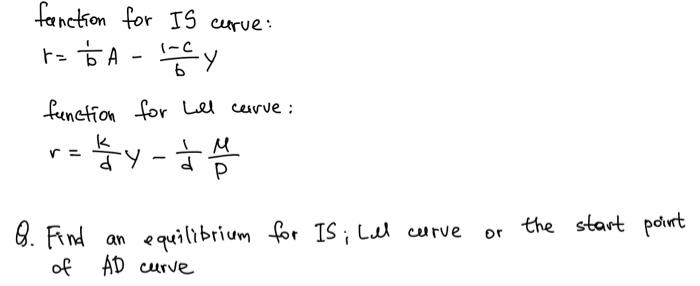 function for IS curve:
r = 1/b A - 1-c/b Y
function for LM curve:
r = k/d Y - 1/d M/P
Q. Find an equilibrium for IS; LM curve or the start point
of AD curve